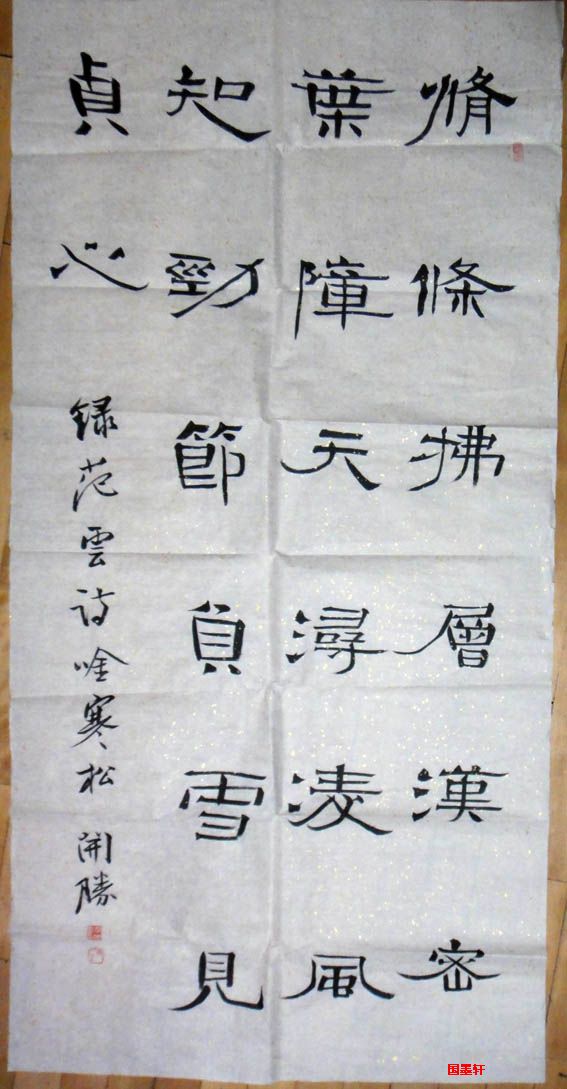 脩條拂層漢密
葉障天潯凌風
知勁節負雪見
貞心
録范雲詩唫寒松 開勝
国墨轩